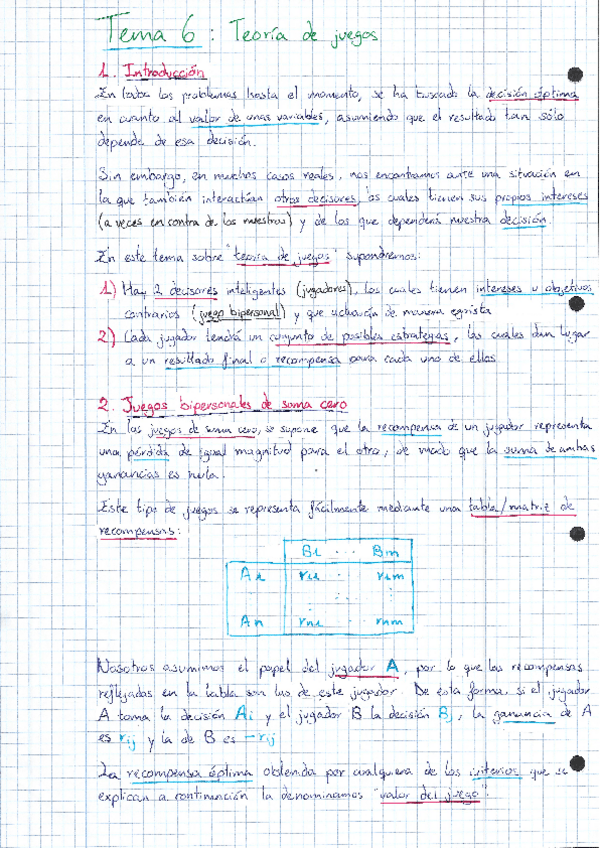 Tema 6: Teoría de juegos
1. Introducción
En todos los problemas hasta el momento, se ha buscado la decisión óptima
en cuanto al valor de unas variables, asumiendo que el resultado tan sólo
depende de esa decisión.
Sin embargo, en muchos casos reales, nos encontramos ante una situación en
la que también interactúan otros decisores, los cuales tienen sus propios intereses
(a veces en contra de los nuestros) y de los que dependerá nuestra decisión.
En este tema sobre "teoría de juegos" supondremos:
1) Hay 2 decisores inteligentes (jugadores), los cuales tienen intereses u objetivos
contrarios (juego bipersonal) y que actuarán de manera egoísta
2) Cada jugador tendrá un conjunto de posibles estrategias, las cuales dan lugar
a un resultado final o recompensa para cada uno de ellos
2. Juegos bipersonales de suma cero
En los juegos de suma cero, se supone que la recompensa de un jugador representa
una pérdida de igual magnitud para el otro, de modo que la suma de ambas
ganancias es nula.
Este tipo de juegos se representa fácilmente mediante una tabla/matriz de
recompensas:
B1 ... Bm
A1 r11 ... r1m
An rn1 ... rnm
Nosotros asumimos el papel del jugador A, por lo que las recompensas
reflejadas en la tabla son las de este jugador. De esta forma, si el jugador
A toma la decisión Ai y el jugador B la decisión Bj, la ganancia de A
es rij y la de B es -rij
La recompensa óptima obtenida por cualquiera de los criterios que se
explican a continuación la denominamos "valor del juego".